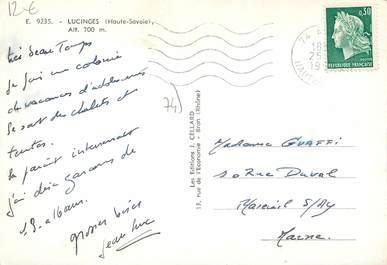 12-€
E. 9235. - LUCINGES (Haute-Savoie)
Alt. 700 m.
Très beau Temps
Je fais une colonie
de vacances d'adolescents
Ce sont des chalets et
tentes.
ça paraît intéressant
j'ai dix garçons de
grosses bises
Jean Luc
74)
Les Editions J. CELLARD
13, rue de l'Economie - Bron (Rhône)
0,30
REPUBLIQUE FRANÇAISE
Madame GUAFFI
Rue Duval
Mareuil S/AY
Marne.